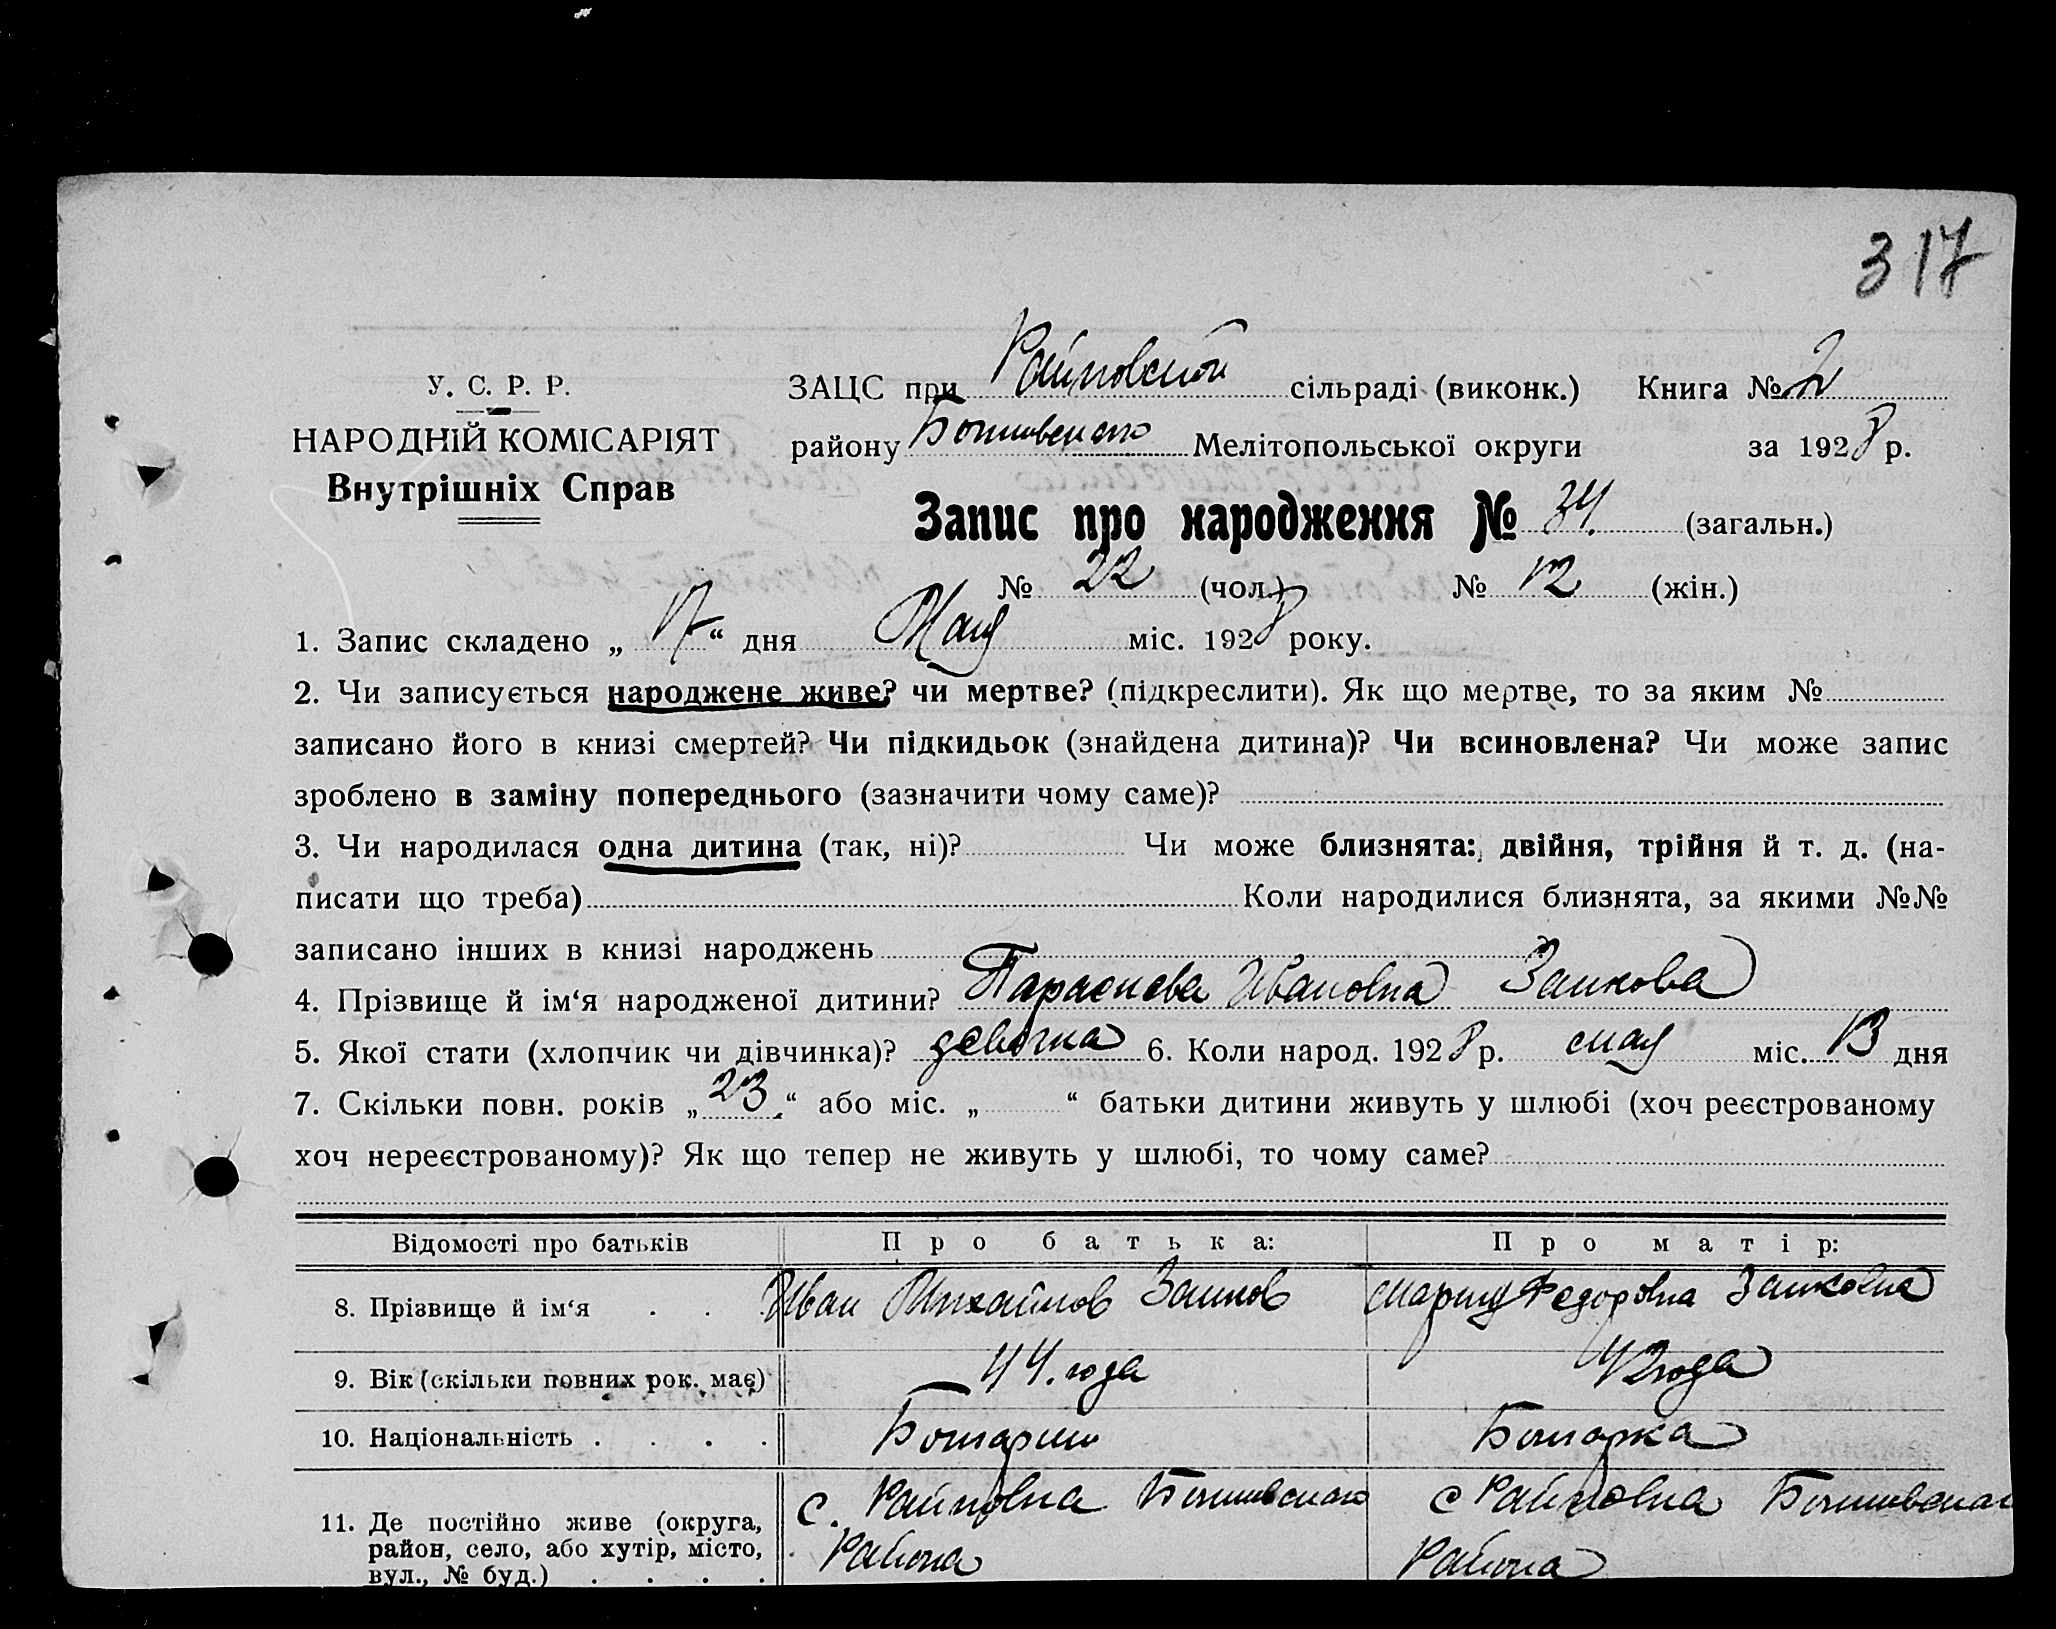 317
У. С. Р. Р.
НАРОДНІЙ КОМІСАРІЯТ
Внутрішніх Справ
ЗАЦС при Райновской сільраді (виконк.) Книга № 2
району Мелітопольської округи за 1928 р.
Запис про народження № 34 (загальн.)
№ 22 (чол.) № 12 (жін.)
1. Запис складено „ 17 “ дня Мая міс. 1928 року.
2. Чи записується народжене живе? чи мертве? (підкреслити). Як що мертве, то за яким №
записано його в книзі смертей? Чи підкидьок (знайдена дитина)? Чи всиновлена? Чи може запис
зроблено в заміну попереднього (зазначити чому саме)?
3. Чи народилася одна дитина (так, ні)? Чи може близнята: двійня, трійня й т. д. (на-
писати що треба) Коли народилися близнята, за якими №№
записано інших в книзі народжень
4. Прізвище й ім‘я народженої дитини? Параскева Ивановна Заикова
5. Якої стати (хлопчик чи дівчинка)? девочка 6. Коли народ. 1928 р. мая міс. 13 дня
7. Скільки повн. років „ 23 “ або міс. „ “ батьки дитини живуть у шлюбі (хоч реєстрованому
хоч нереєстрованому)? Як що тепер не живуть у шлюбі, то чому саме?
Відомості про батьків Про батька: Про матір:
8. Прізвище й ім‘я . . Иван Михайлов Заиков Мария Федоровна
9. Вік (скільки повних рок. має) 44 года 42 года
10. Національність . . . . Болгарин Болгарка
11. Де постійно живе (округа,
район, село, або хутір, місто,
вул., № буд.) . . . .
с. Райновка
Района
с Райновка
Района